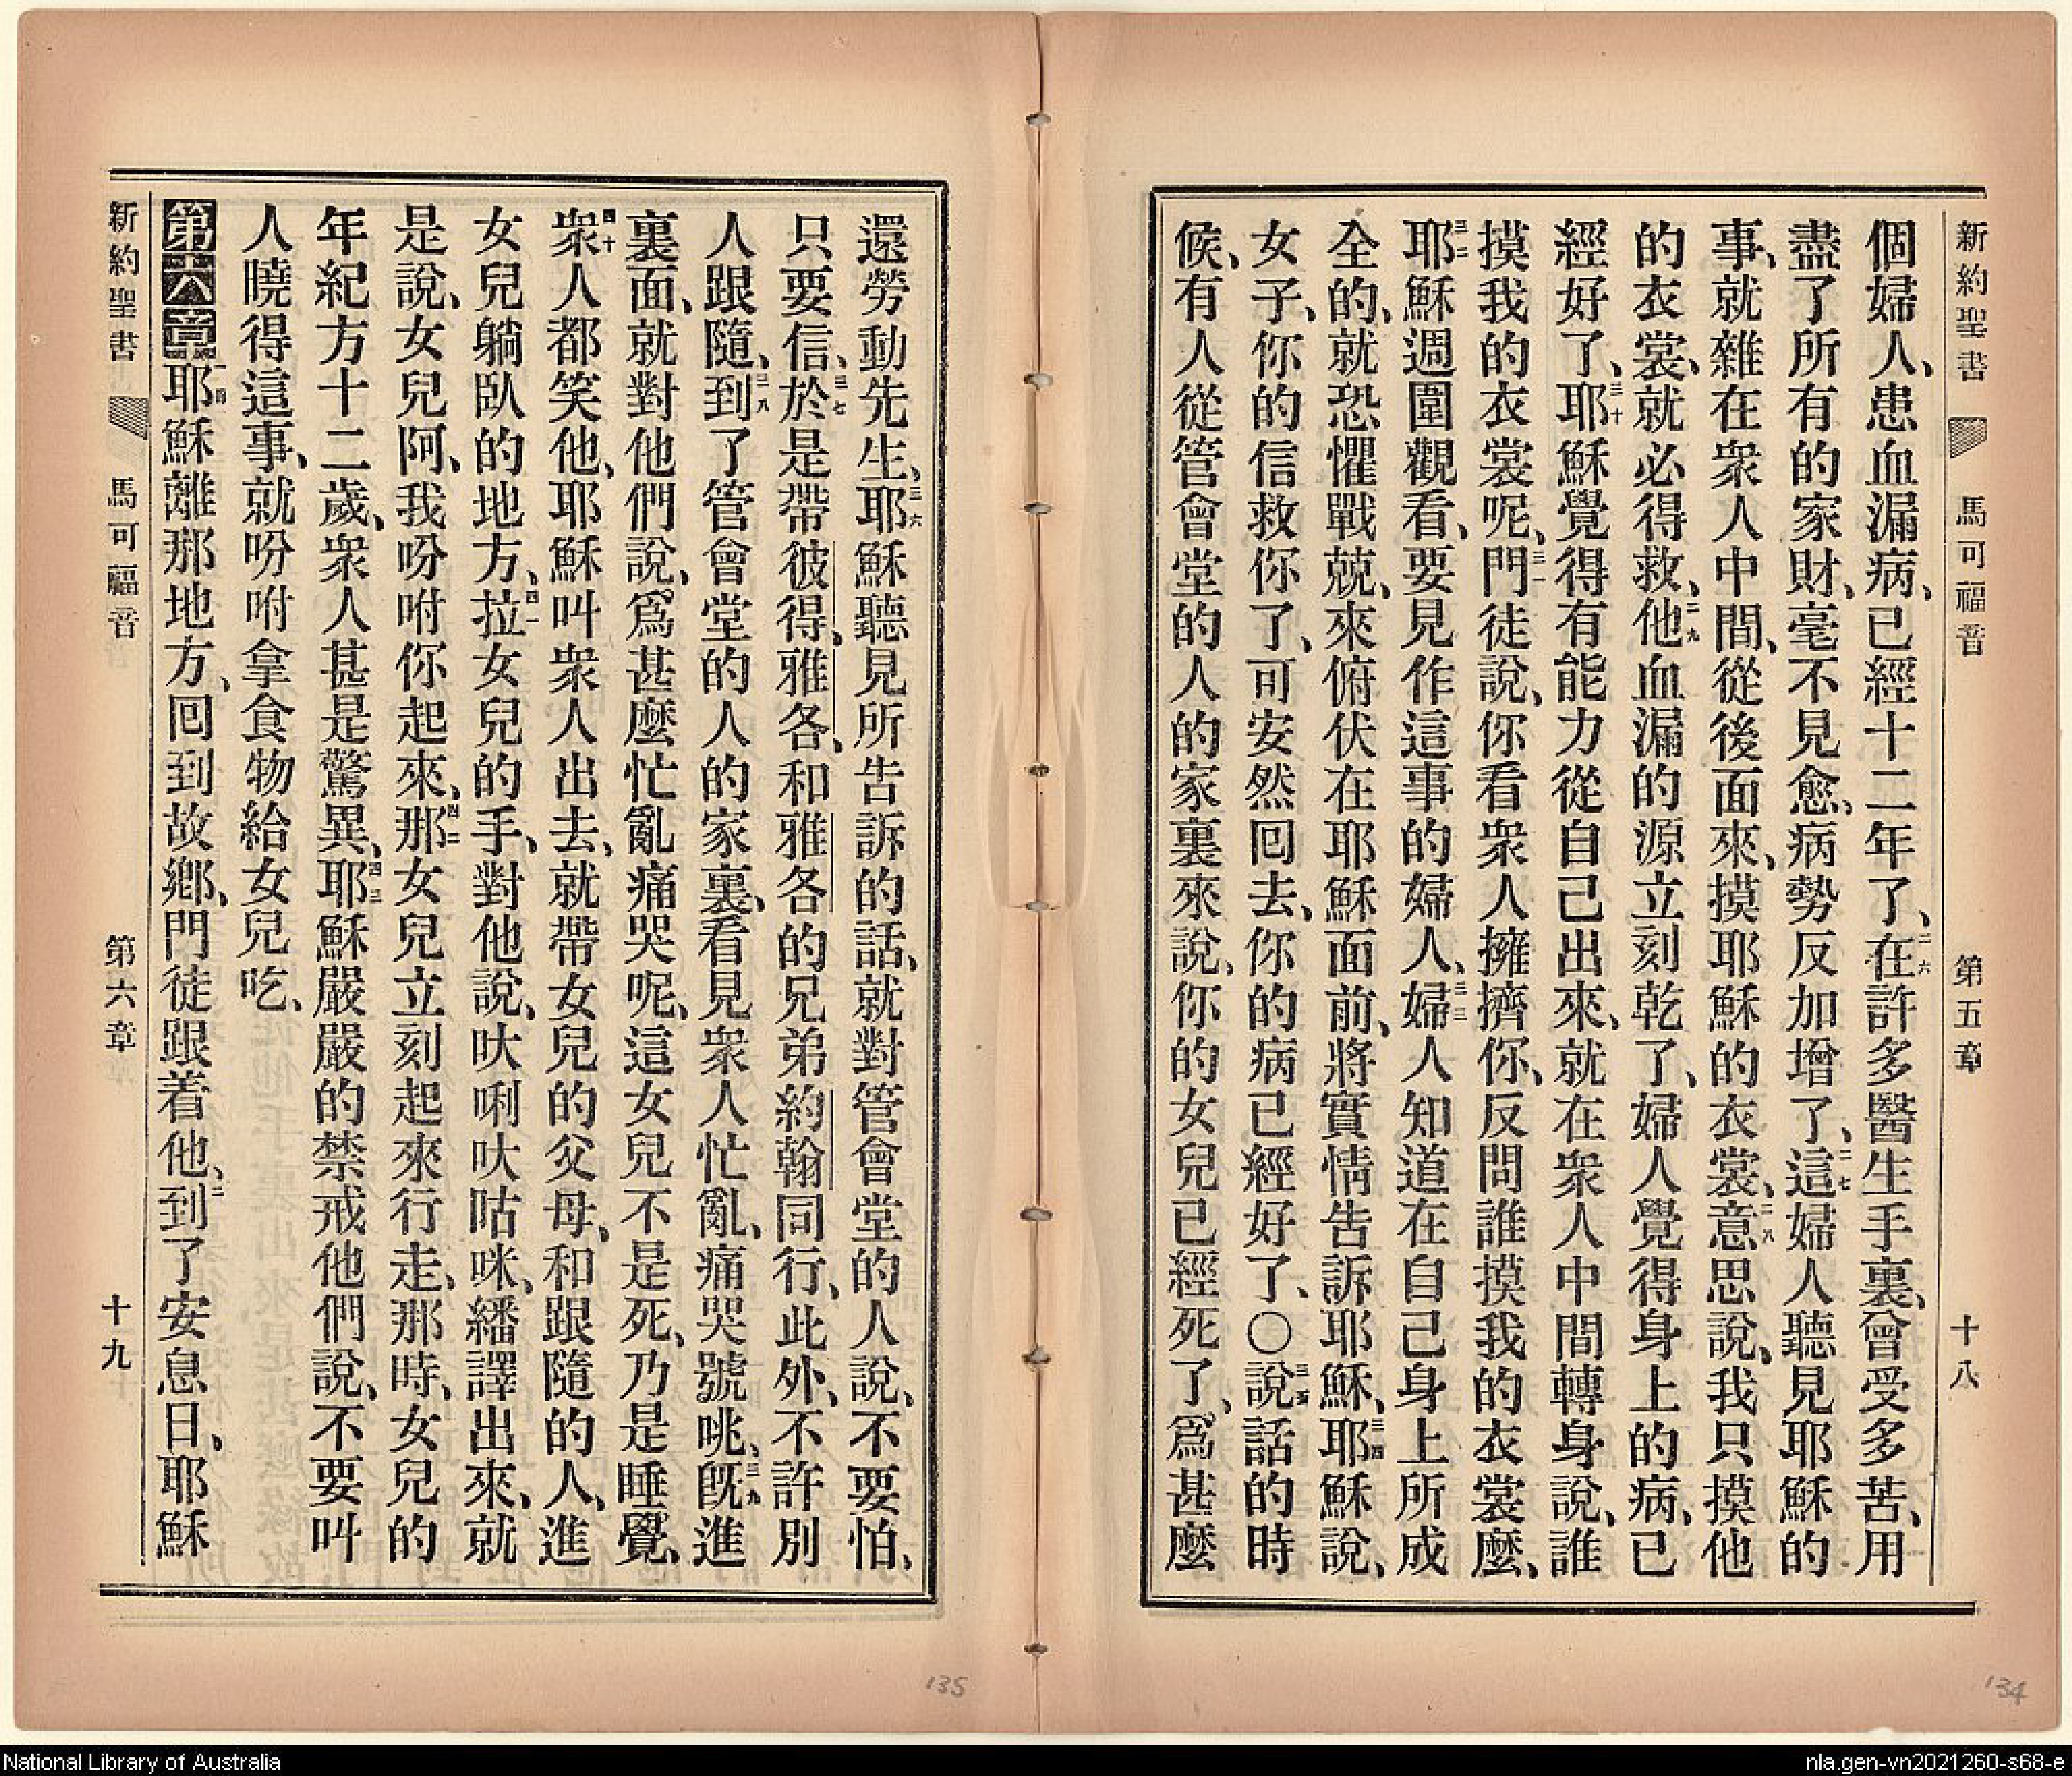 新約聖書 馬可福音 第五章 十八
個婦人、患血漏病、已經十二年了、二六在許多醫生手裏、曾受多苦、用
盡了所有的家財、毫不見愈、病勢反加增了、二七這婦人聽見耶穌的
事、就雜在衆人中間、從後面來、摸耶穌的衣裳、二八意思說、我只摸他
的衣裳、就必得救、二九他血漏的源立刻乾了、婦人覺得身上的病、已
經好了、三十耶穌覺得有能力從自己出來、就在衆人中間轉身說、誰
摸我的衣裳呢、三一門徒說、你看衆人擁擠你、反問誰摸我的衣裳麼、
三二耶穌週圍觀看、要見作這事的婦人、三三婦人知道在自己身上所成
全的、就恐懼戰兢、來俯伏在耶穌面前、將實情告訴耶穌、三四耶穌說、
女子、你的信救你了、可安然回去、你的病已經好了、〇三五說話的時
候、有人從管會堂的人的家裏來說、你的女兒已經死了、爲甚麼
還勞動先生、三六耶穌聽見所告訴的話、就對管會堂的人說、不要怕、
只要信、三七於是帶彼得、雅各、和雅各的兄弟約翰同行、此外、不許別
人跟隨、三八到了管會堂的人的家裏、看見衆人忙亂、痛哭號咷、三九旣進
裏面、就對他們說、爲甚麼忙亂痛哭呢、這女兒不是死、乃是睡覺、
四十衆人都笑他、耶穌叫衆人出去、就帶女兒的父母、和跟隨的人、進
女兒躺臥的地方、四一拉女兒的手、對他說、吠唎吠咕咪、繙譯出來、就
是說、女兒阿、我吩咐你起來、四二那女兒立刻起來行走、那時、女兒的
年紀方十二歲、衆人甚是驚異、四三耶穌嚴嚴的禁戒他們說、不要叫
人曉得這事、就吩咐拿食物給女兒吃、
第六章 一耶穌離那地方、回到故鄉、門徒跟着他、二到了安息日、耶穌
新約聖書 馬可福音 第六章 十九
135
134
National Library of Australia
nla.gen-vn2021260-s68-e